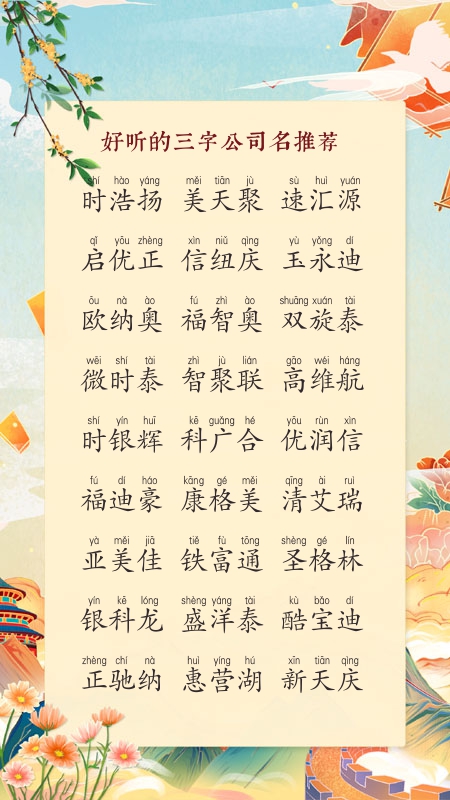 好听的三字公司名推荐
shí hào yáng měi tiān jù sù huì yuán
时浩扬 美天聚 速汇源
qǐ yōu zhèng xìn niǔ qìng yù yǒng dí
启优正 信纽庆 玉永迪
ōu nà ào fú zhì ào shuāng xuán tài
欧纳奥 福智奥 双旋泰
wēi shí tài zhì jù lián gāo wéi háng
微时泰 智聚联 高维航
shí yín huī kē guǎng hé yōu rùn xìn
时银辉 科广合 优润信
fú dí háo kāng gé měi qīng ài ruì
福迪豪 康格美 清艾瑞
yà měi jiā tiě fù tōng shèng gé lín
亚美佳 铁富通 圣格林
yín kē lóng shèng yáng tài kù bǎo dí
银科龙 盛洋泰 酷宝迪
zhèng chí nà huì yíng hú xīn tiān qìng
正驰纳 惠营湖 新天庆